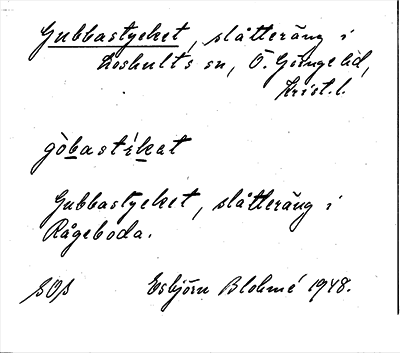 Gubbastycket, slåtteräng i
Loshults sn, Ö. Göinge hd,
Krist. l.
gòbastı́kat
Gubbastycket, slåtteräng i
Rågeboda.
SOS Esbjörn Blohmé 1948.